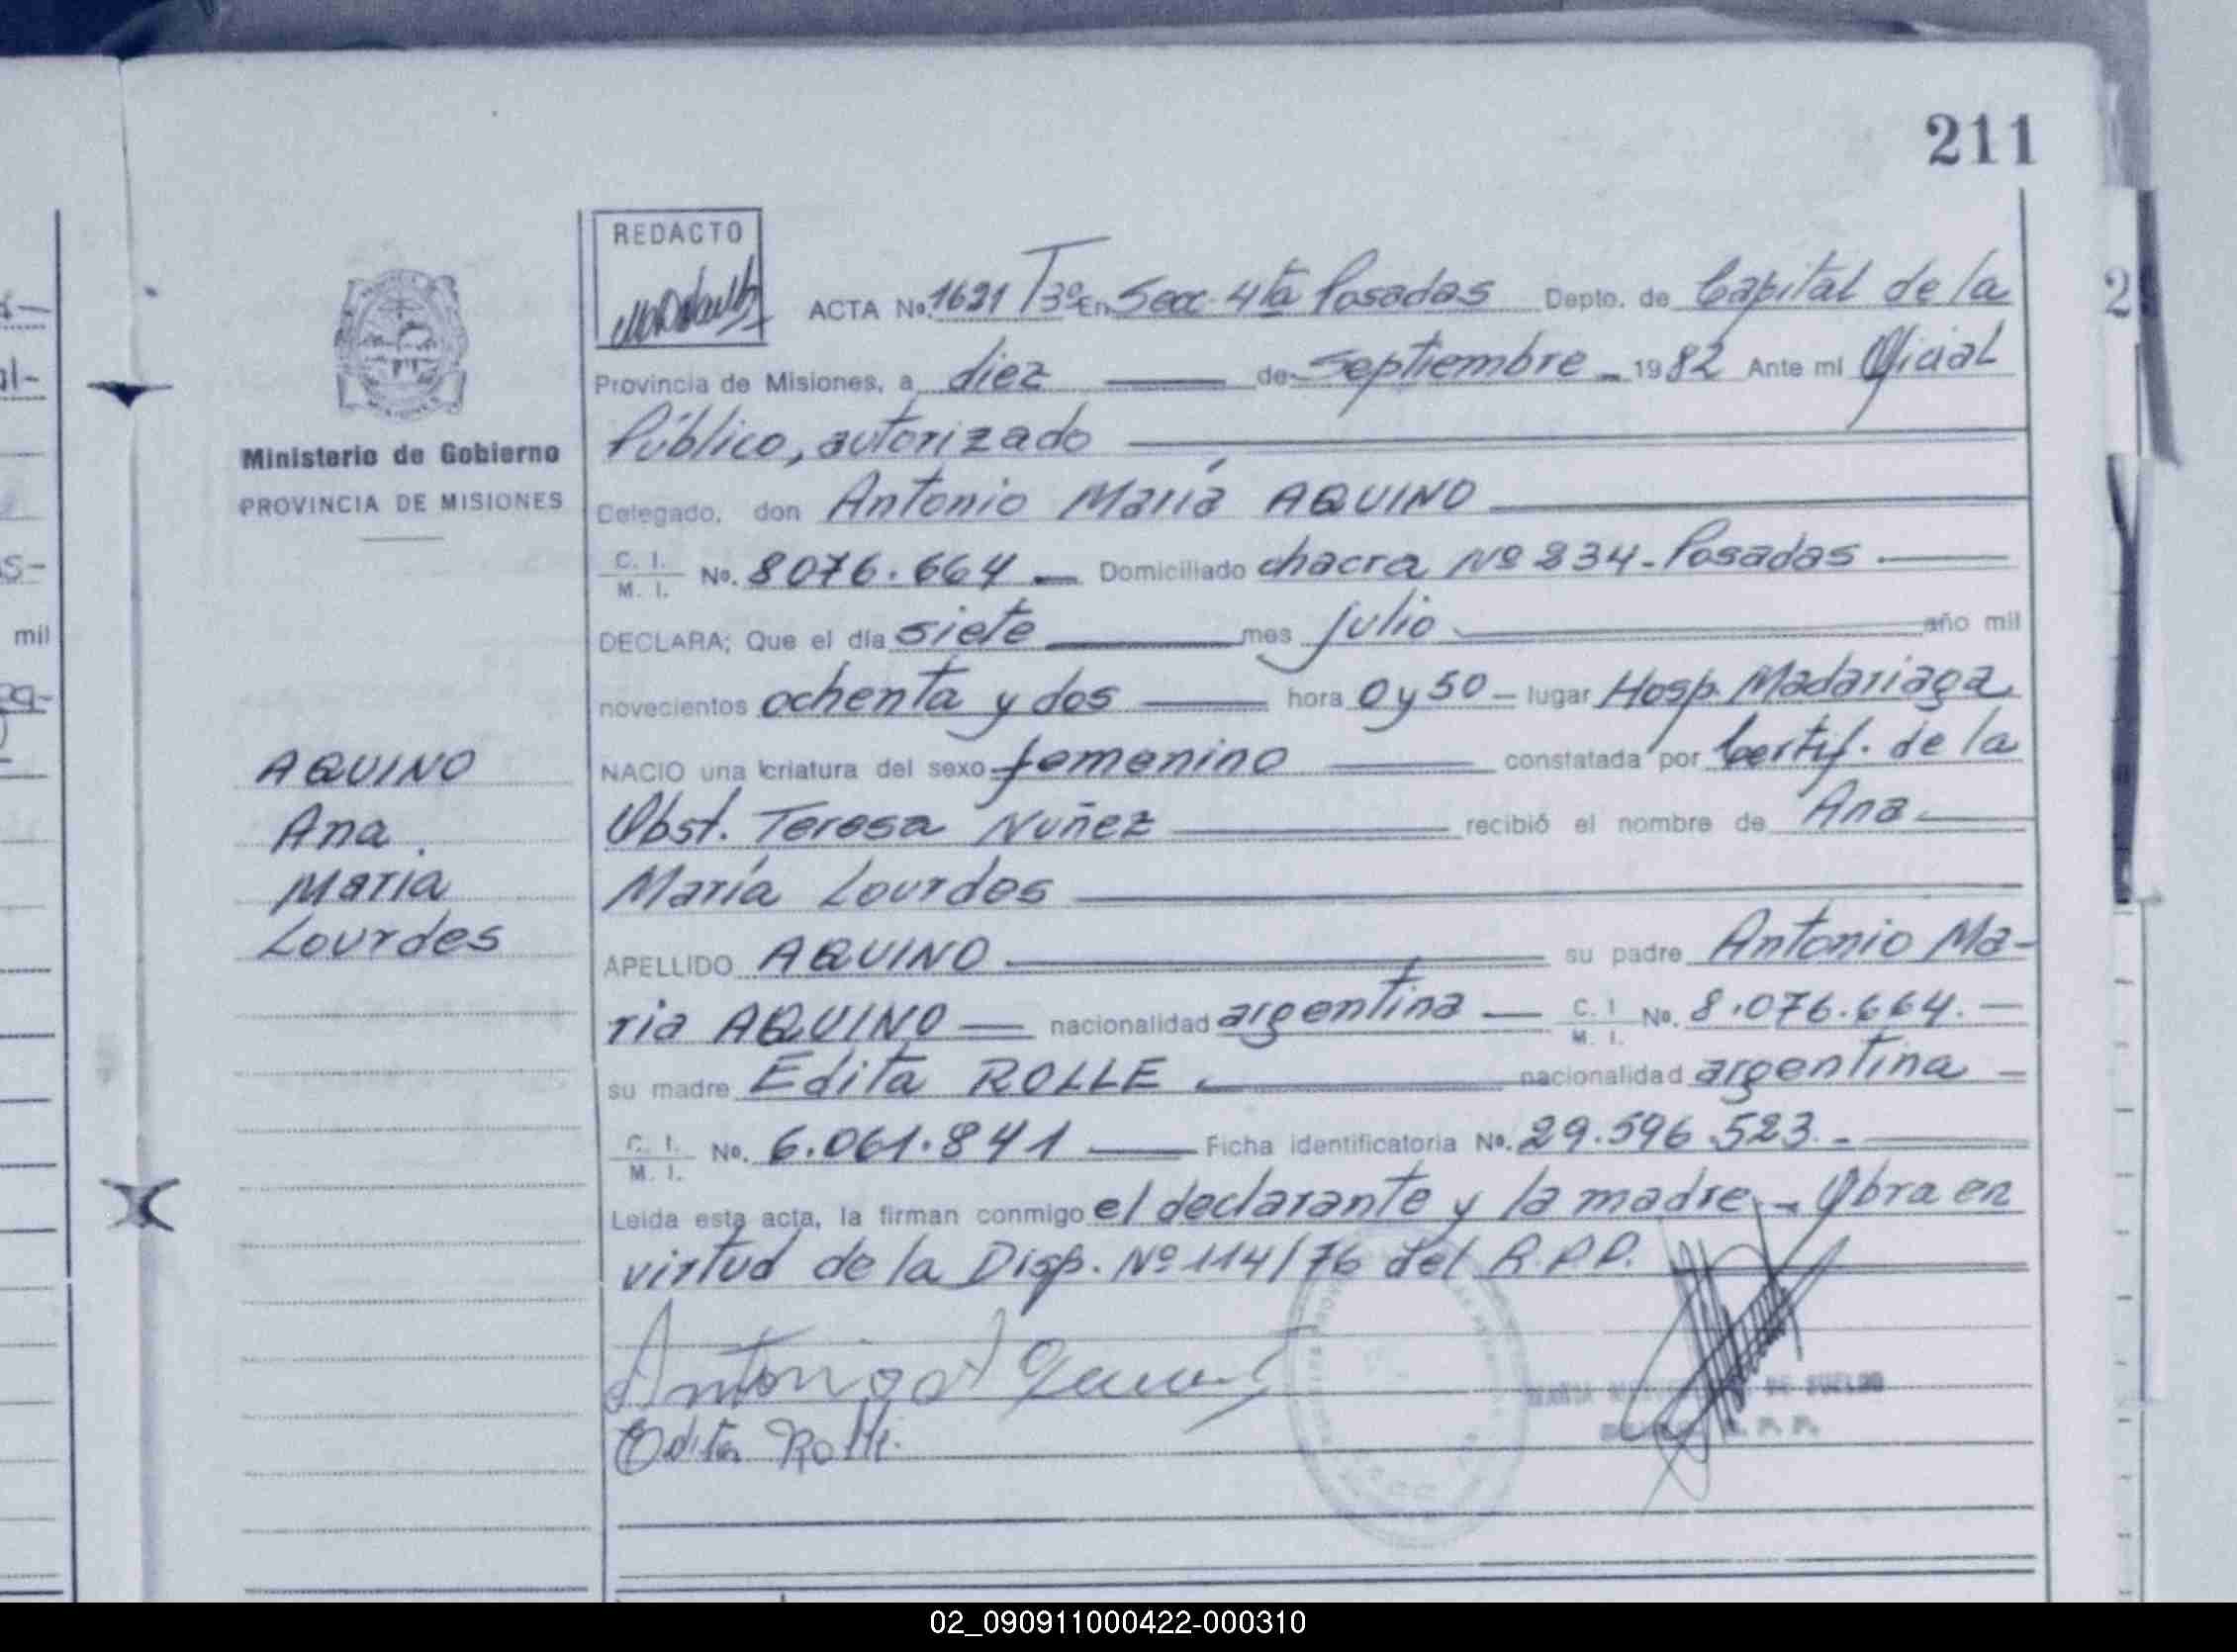 211
REDACTO
ACTA No. 1621 Tº3º En Secc. 4ta Posadas Depto. de Capital de la
Provincia de Misiones, a diez de Septiembre - 1982 Ante mi Oficial
Público, autorizado
Ministerio de Gobierno
PROVINCIA DE MISIONES
Delegado, don Antonio María AQUINO
C. I. M. I. No. 8076.664 - Domiciliado chacra Nº 234 - Posadas -
DECLARA; Que el día siete mes julio año mil
novecientos ochenta y dos hora 0 y 50 - lugar Hosp. Madariaga
NACIO una criatura del sexo femenino constatada por Certif. de la
Obst. Teresa Nuñez recibió el nombre de Ana
María Lourdes
AQUINO
Ana
María
Lourdes
APELLIDO AQUINO su padre Antonio Ma-
ria AQUINO nacionalidad argentina C. I. M. I. No. 8.076.664. -
su madre Edita ROLLE nacionalidad argentina -
C. I. M. I. No. 6.061.841 Ficha identificatoria No. 29.596.523. -
Leida esta acta, la firman conmigo el declarante y la madre - Obra en
virtud de la Disp. Nº 114/76 del R.P.P.
Edita Rolle.
DE SUELDO
02_090911000422-000310